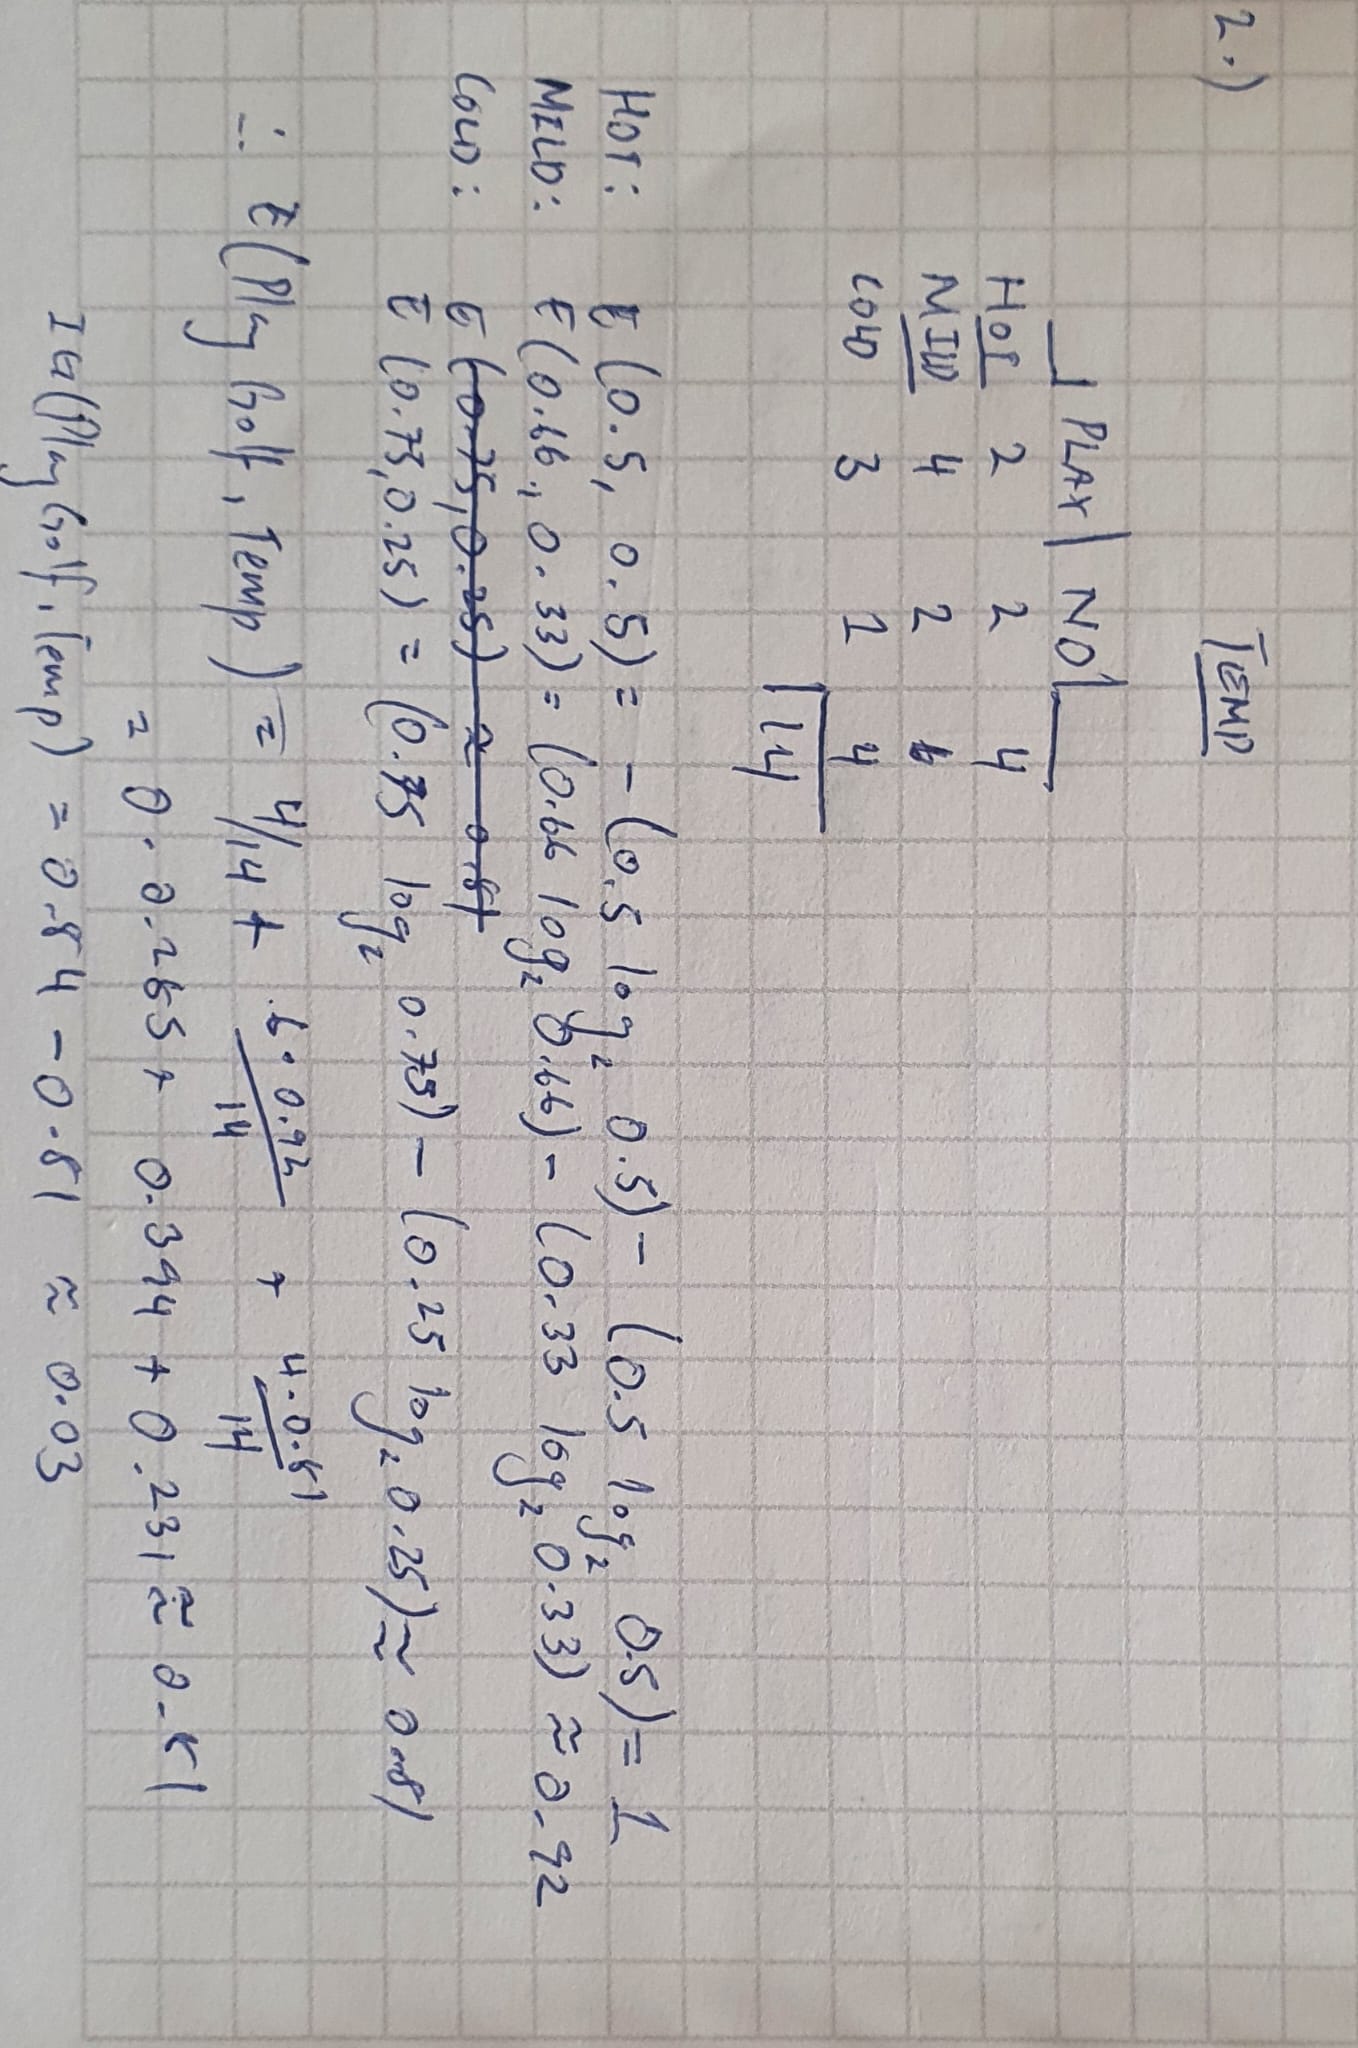 2.) TEMP
PLAY | NO
HOT 2 2 4
MILD 4 2 6
COLD 3 1 4
14
HOT: E (0.5, 0.5) = - (0.5 log₂ 0.5) - (0.5 log₂ 0.5) = 1
MILD: E (0.66, 0.33) = (0.66 log₂ 0.66) - (0.33 log₂ 0.33) ≈ 0.92
COLD: E (0.75, 0.25) ≈ 0.81
E (0.75, 0.25) = (0.75 log₂ 0.75) - (0.25 log₂ 0.25) ≈ 0.81
∴ E (Play Golf, Temp) = 4/14 + 6·0.92/14 + 4·0.81/14
= 0.285 + 0.394 + 0.231 ≈ 0.91
IG(Play Golf, Temp) = 0.94 - 0.91 ≈ 0.03